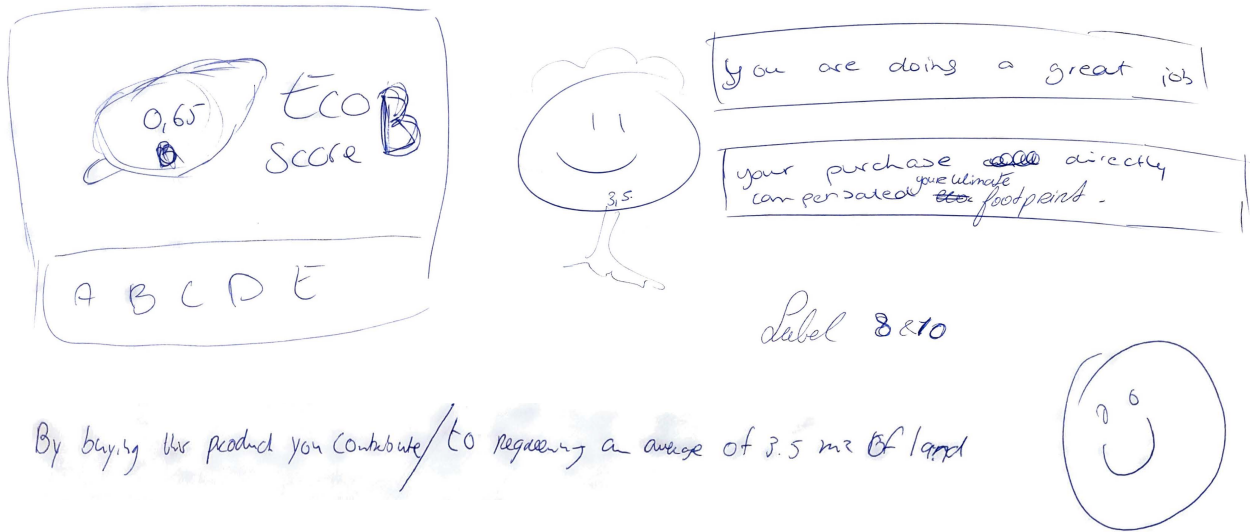 0,65
B
Eco
Score
B
A B C D E
3,5.
you are doing a great job
your purchase directly
compensated your climate footprint.
Label 8 &10
By buying this product you contribute/to regreening an average of 3.5 m2 Of land